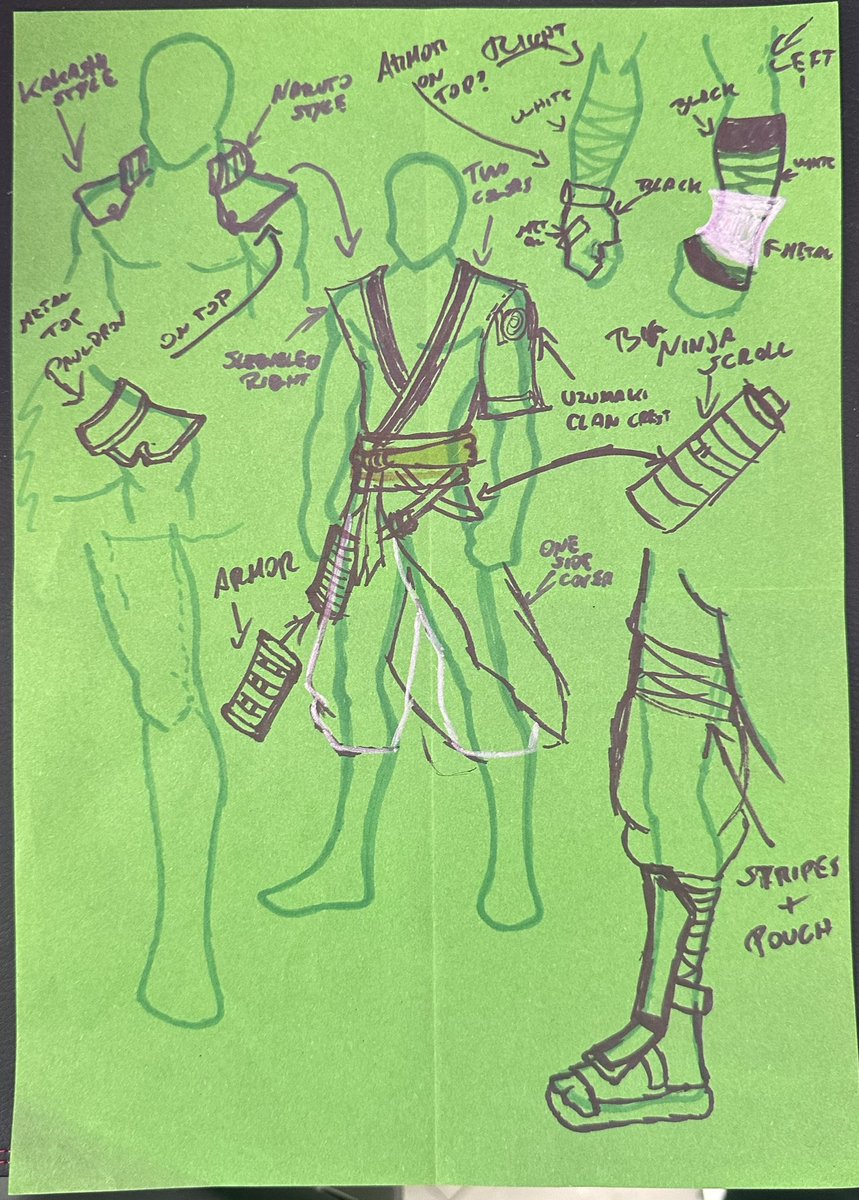 KAKASHI
STYLE
NARUTO
STYLE
ARMOR
ON
TOP?
RIGHT
WHITE
BLACK
MET
AL
LEFT
BLACK
WHITE
METAL
TWO
COLORS
METAL
TOP
PAULDRON
ON TOP
SLEEVELESS
RIGHT
UZUMAKI
CLAN CREST
BIG
NINJA
SCROLL
ARMOR
ONE
SIDE
COVER
STRIPES
+
POUCH